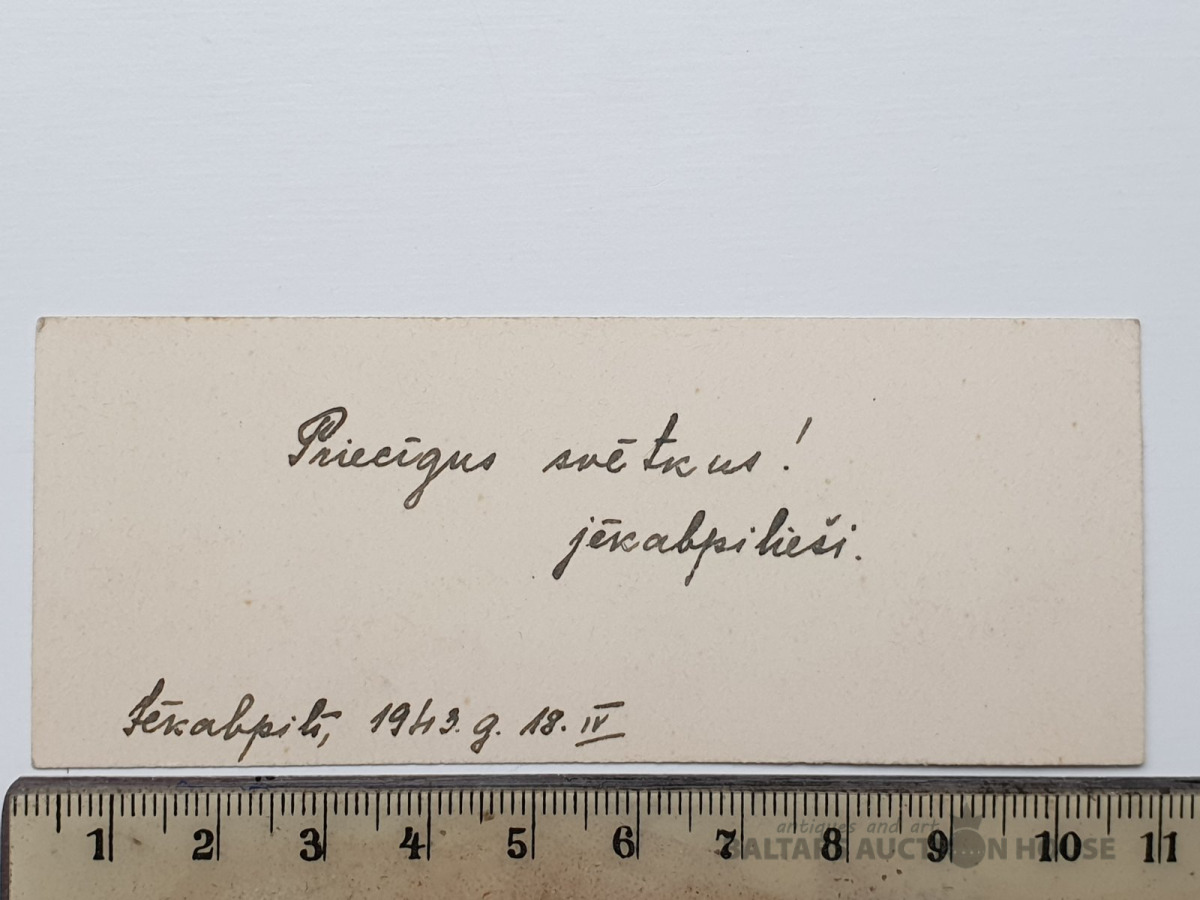 Priecīgus svētkus!
jēkabpilieši.
Jēkabpilī, 1943. g. 18. IV
1 2 3 4 5 6 7 8 9 10 11
antiques and art
BALTARS AUCTION HOUSE